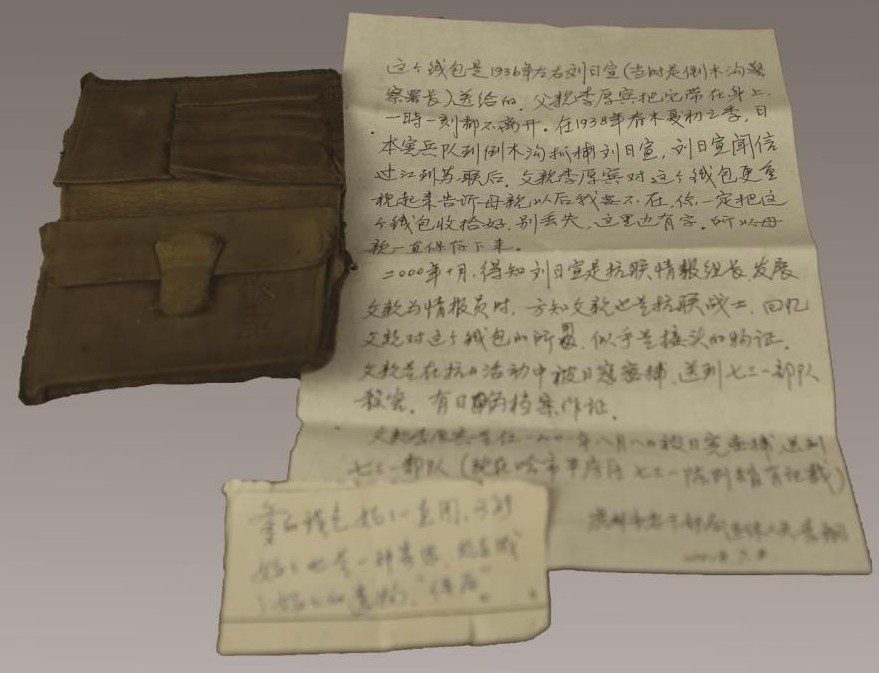 这个钱包是1936年左右刘日宣(当时是倒木沟警
察署长)送给的。父亲李厚宾把它带在身上,
一时一刻都不离开。在1938年春末夏初之季,日
本宪兵队到倒木沟抓捕刘日宣,刘日宣闻信
过江到苏联后。父亲李厚宾对这个钱包更重
视起来告诉母亲以后我要不在,你一定把这
个钱包收拾好,别丢失,这里也有字。所以母
亲一直保存下来。
2000年十月,得知刘日宣是抗联情报组长,发展
父亲为情报员时,方知父亲也是抗联战士。回忆
父亲对这个钱包的所,似乎是接头的物证。
父亲是在抗日活动中被日寇密捕,送到七三一部队
杀害。有日的档案作证。
父亲李厚宾是在一九四一年八月八日被日宪密捕,送到
七三一部队(现在哈市平房区七三一陈列馆有记载)
钱包
也是一种
遗物,"保存"。